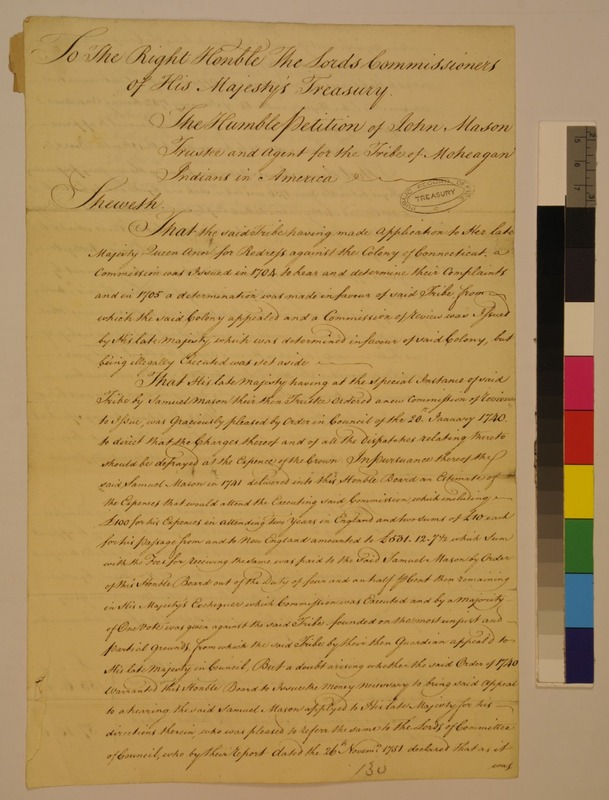 To The Right Honble The Lords Commissioners
of His Majesty's Treasury.
The Humble Petition of John Mason
Trustee and Agent for the Tribe of Moheagan
Indians in America
PUBLIC RECORD OFFICE
TREASURY
Sheweth.
That the said Tribe having made Application to Her late
Majesty Queen Ann for Redress against the Colony of Connecticut, a
Commission was Issued in 1704 to hear and determine their Complaints
and in 1705 a determination was made in favour of said Tribe from
which the said Colony appealed and a Commission of Review was Issued
by His late Majesty which was determined in favour of said Colony, but
being illegally Executed was set aside
That His late Majesty having at the special Instance of said
Tribe by Samuel Mason their then Trustee Ordered a new Commission of Review
to Issue, was Graciously pleased by Order in Council of the January 1740.
to direct that the Charges thereof and of all the Dispatches relating thereto
should be defrayed at the Expence of the Crown In pursuance thereof the
said Samuel Mason in 1741 delivered into this Honble Board an Estimate of
the Expences that would attend the Executing said Commission which including
£100 for his Expences in attending two Years in England and two sums of £10 each
for his passage from and to New England amounted to 12-7½ which Sum
with the Fees for receiving the same was paid to the Said Samuel Mason by Order
of this Honble Board out of the Duty of four and an half p Cent then remaining
in His Majesty's Exchequer which Commission was Executed and by a Majority
of One Vote was given against the said Tribe founded on the most unjust and
partial Grounds, from which the said Tribe by their then Guardian appeal'd to
His late Majesty in Council, But a doubt arising whether the said Order of 1740
Warranted this Honble Board to Issue the Money necessary to bring said Appeal
to a hearing the said Samuel Mason applyed to His late Majesty for his
directions therein, who was pleased to referr the same to the Lords of Committee
of Council, who by their report dated the 26th Novemr 1751 declared that as it
was
130